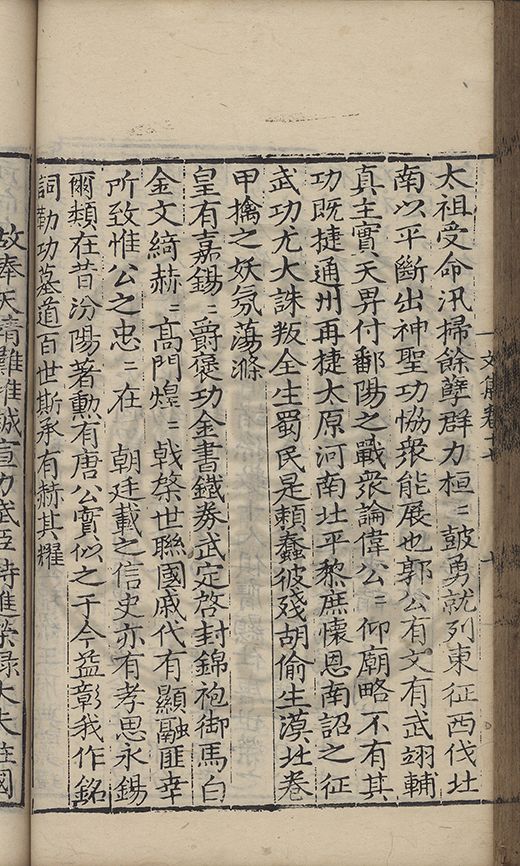 文集卷十七
太祖受命汛掃餘孽群力桓〻皷勇就列東征西伐北
南以平斷出神聖功恊衆能展也郭公有文有武翊輔
真主實天畀付鄱陽之戰衆論偉公〻仰廟略不有其
功既捷通州再捷太原河南北平黎庶懷恩南詔之征
武功尤大誅叛全生蜀民是賴蠢彼殘胡偷生漠北卷
甲擒之妖氛蕩滌
皇有嘉錫〻爵褒功金書鐵券武定啓封錦袍御馬白
金文綺赫〻髙門煌〻戟棨世聯國戚代有顯融匪幸
所致惟公之忠〻在 朝廷載之信史亦有孝思永錫
爾類在昔汾陽著勳有唐公實似之于今益彰我作銘
詞勒功墓道百世斯承有赫其耀
故奉天靖難推誠宣力武臣特進榮禄大夫柱國